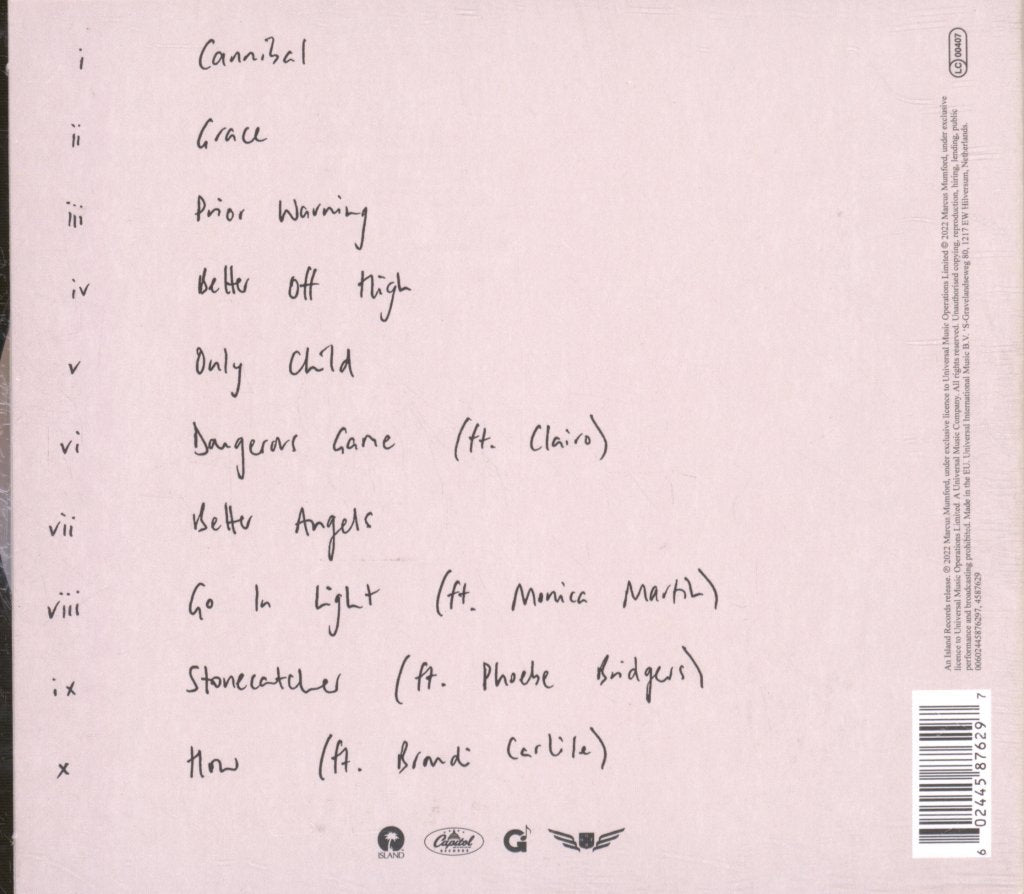 i Cannibal
ii Grace
iii Prior Warning
iv Better Off High
v Only Child
vi Dangerous Game (ft. Clairo)
vii Better Angels
viii Go In Light (ft. Monica Martin)
ix Stonecatcher (ft. Phoebe Bridgers)
x How (ft. Brandi Carlile)
ISLAND
Capitol
RECORDS
G
LC 00407
An Island Records release. ℗ 2022 Marcus Mumford, under exclusive licence to Universal Music Operations Limited © 2022 Marcus Mumford, under exclusive
licence to Universal Music Operations Limited. A Universal Music Company. All rights reserved. Unauthorised copying, reproduction, hiring, lending, public
performance and broadcasting prohibited. Made in the EU. Universal International Music B.V. 'S-Gravelandseweg 80, 1217 EW Hilversum, Netherlands.
00602445876297, 4587629
6 02445 87629 7